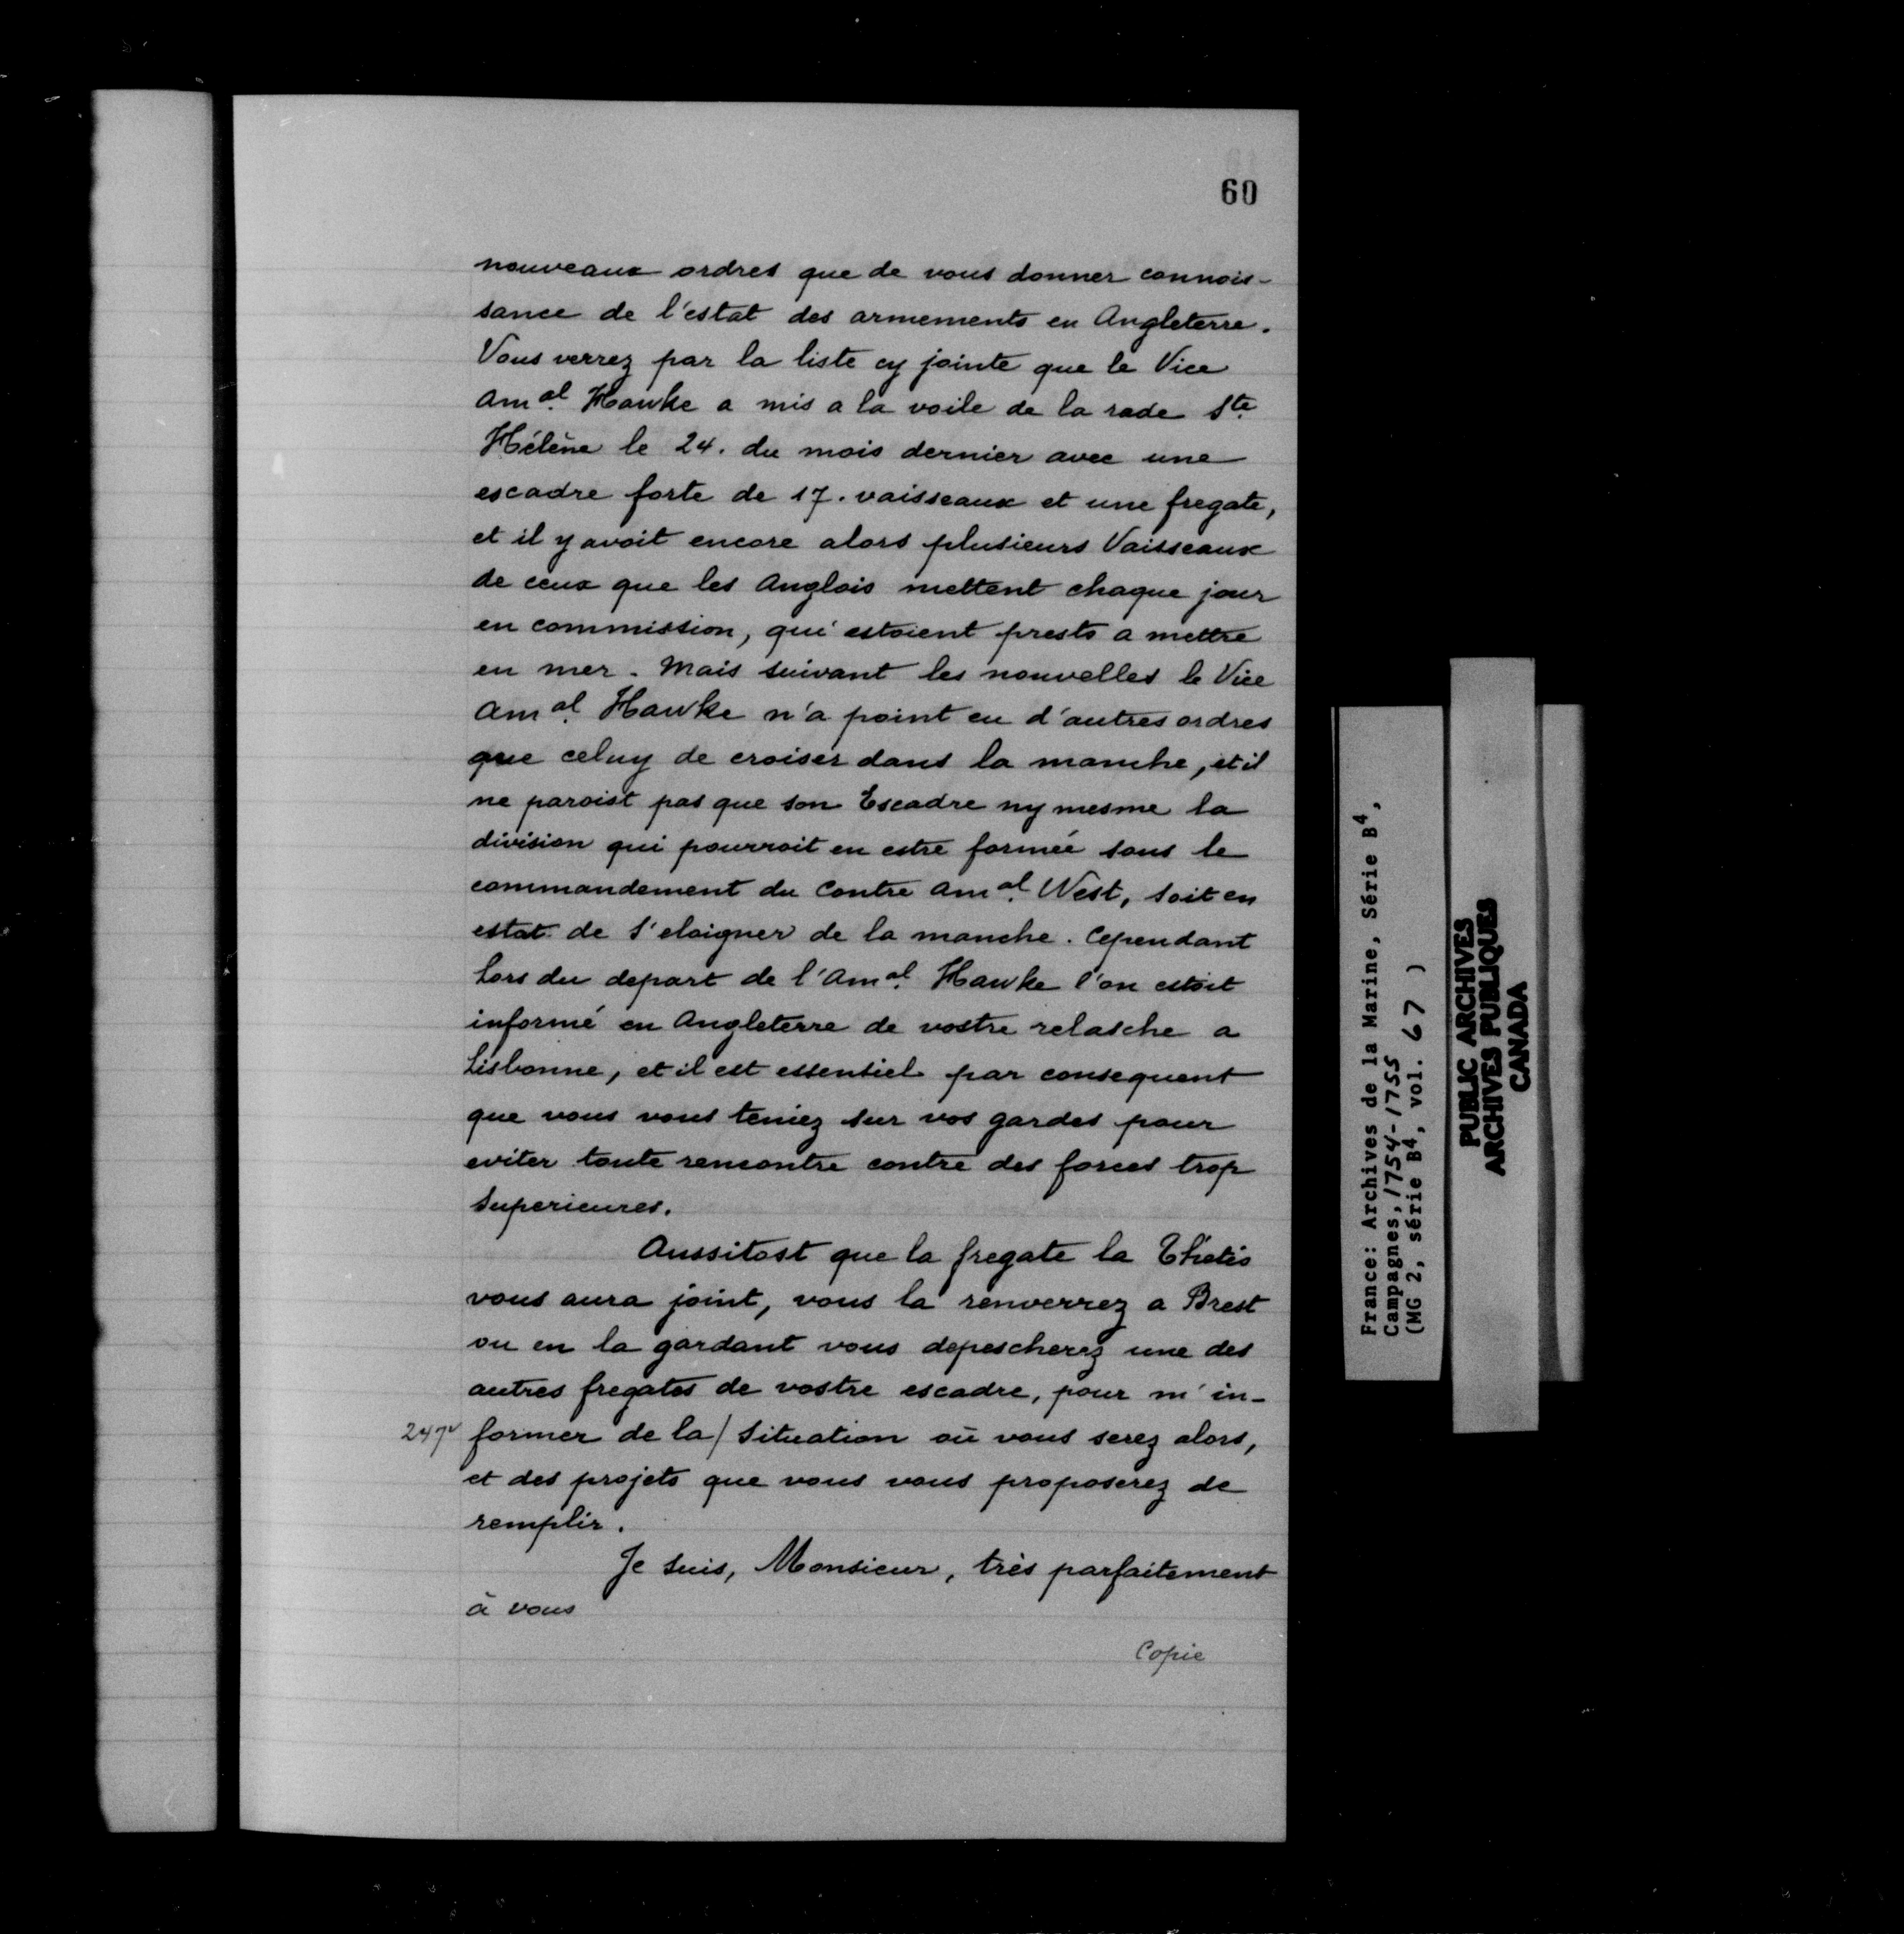 60
nouveaux ordres que de vous donner connois-
sance de l'estat des armements en Angleterre.
Vous verrez par la liste cy jointe que le Vice
Am.al Hawke a mis a la voile de la rade Ste
Hélène le 24. du mois dernier avec une
escadre forte de 17. vaisseaux et une fregate,
et il y avoit encore alors plusieurs Vaisseaux
de ceux que les Anglois mettent chaque jour
en commission, qui estoient prests a mettre
en mer. Mais suivant les nouvelles le Vice
Am.al Hawke n'a point eu d'autres ordres
que celuy de croiser dans la manche, et il
ne paroist pas que son Escadre ny mesme la
division qui pourroit en estre formée sous le
commandement du Contre Am.al West, soit en
estat de s'eloigner de la manche. Cependant
lors du depart de l'Am.al Hawke l'on estoit
informé en Angleterre de vostre relasche a
Lisbonne, et il est essentiel par consequent
que vous vous teniez sur vos gardes pour
eviter toute rencontre contre des forces trop
superieures.
Aussitost que la fregate la Thetis
vous aura joint, vous la renverrez a Brest
ou en la gardant vous depescherez une des
autres fregates de vostre escadre, pour m'in-
247v former de la/ situation où vous serez alors,
et des projets que vous vous proposerez de
remplir.
Je suis, Monsieur, très parfaitement
à vous
Copie
France: Archives de la Marine, Série B4,
Campagnes, 1754-1755
(MG 2, série B4, vol. 67 )
PUBLIC ARCHIVES
ARCHIVES PUBLIQUES
CANADA